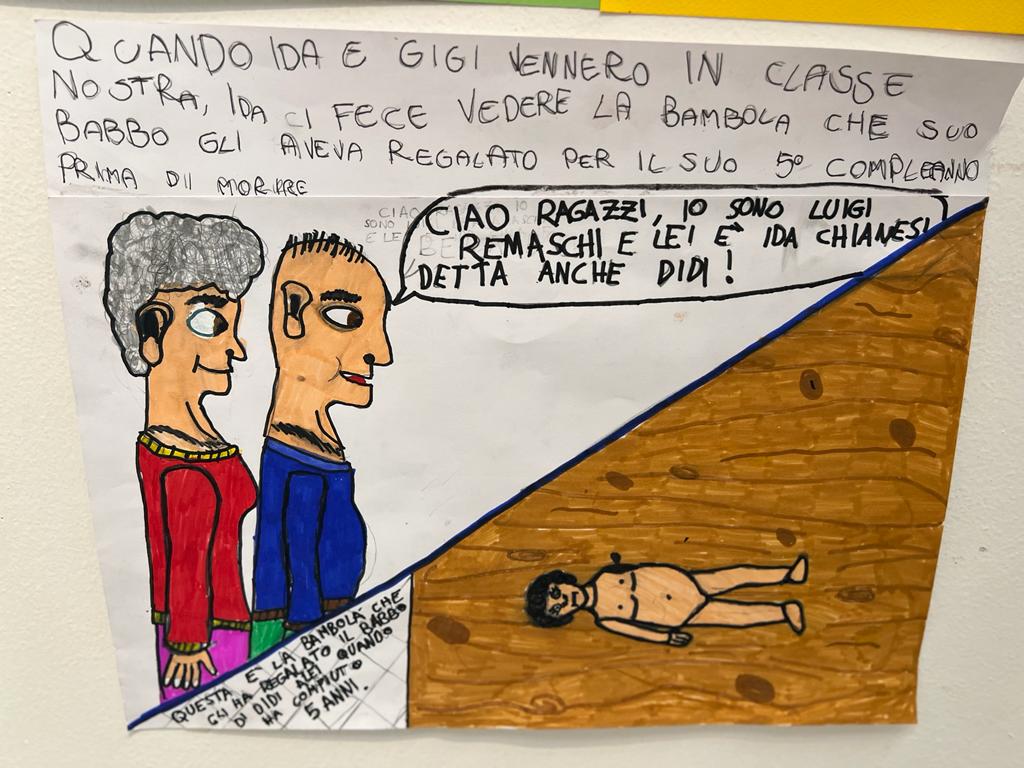 QUANDO IDA E GIGI VENNERO IN CLASSE
NOSTRA, IDA CI FECE VEDERE LA BAMBOLA CHE SUO
BABBO GLI AVEVA REGALATO PER IL SUO 5° COMPLEANNO
PRIMA DI MORIRE
CIAO RAGAZZI, IO SONO LUIGI
REMASCHI E LEI E' IDA CHIANESI
DETTA ANCHE DIDI!
QUESTA E' LA BAMBOLA CHE
GLI HA REGALATO IL BABBO
DI DIDI A LEI QUANDO
HA COMPIUTO
5 ANNI.